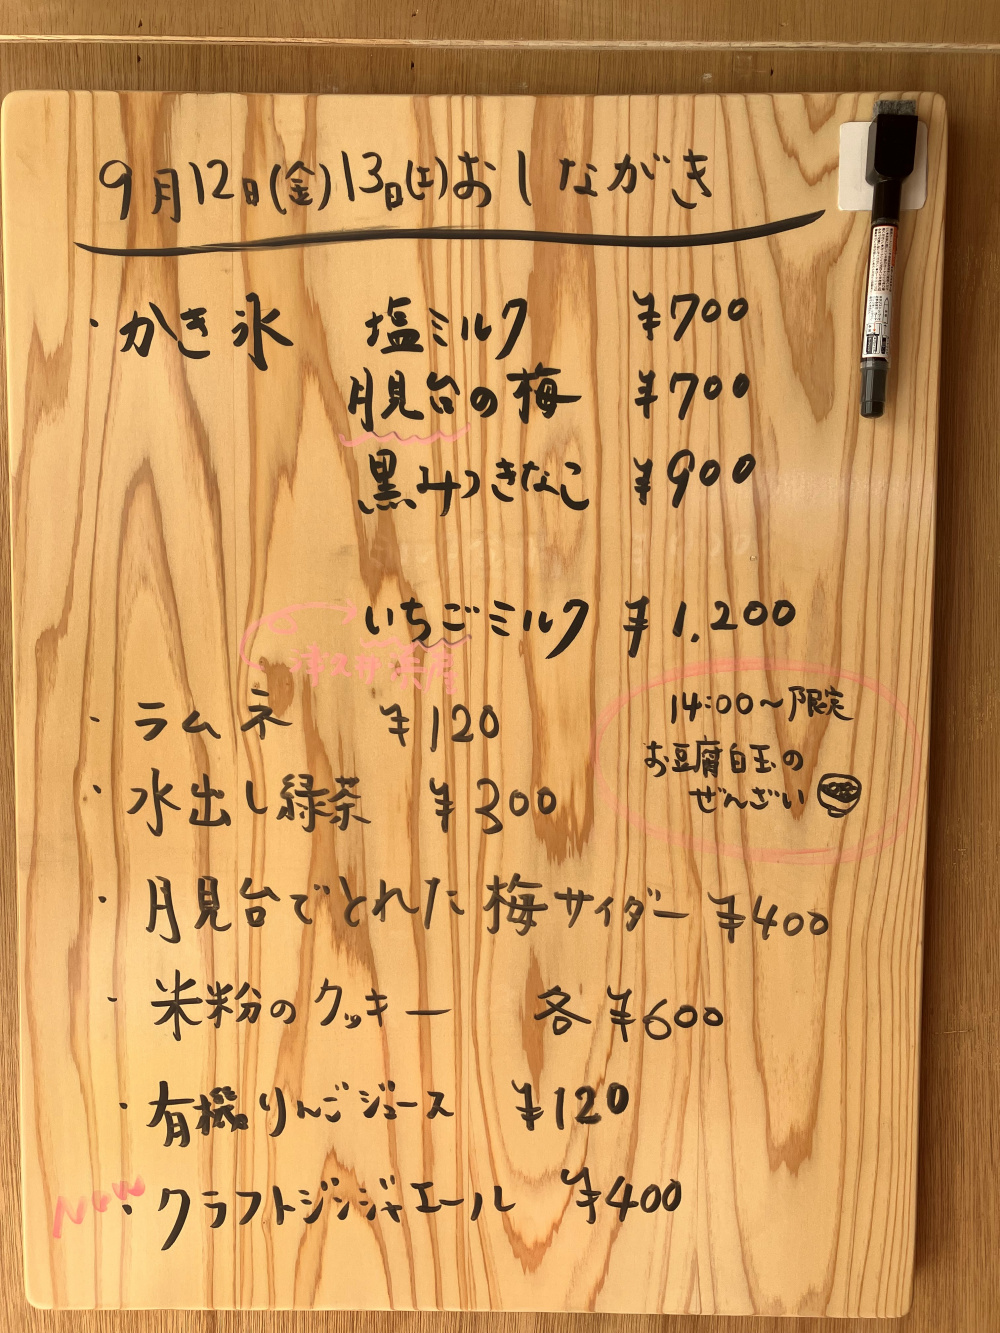 9月12日(金)13日(土)おしながき
・かき氷 塩ミルク ¥700
月見台の梅 ¥700
黒みつきなこ ¥900
いちごミルク ¥1,200
津久井浜産
・ラムネ ¥120
14:00～限定
お豆腐白玉の
ぜんざい
・水出し緑茶 ¥300
・月見台でとれた梅サイダー ¥400
・米粉のクッキー 各¥600
・有機りんごジュース ¥120
New・クラフトジンジャエール ¥400